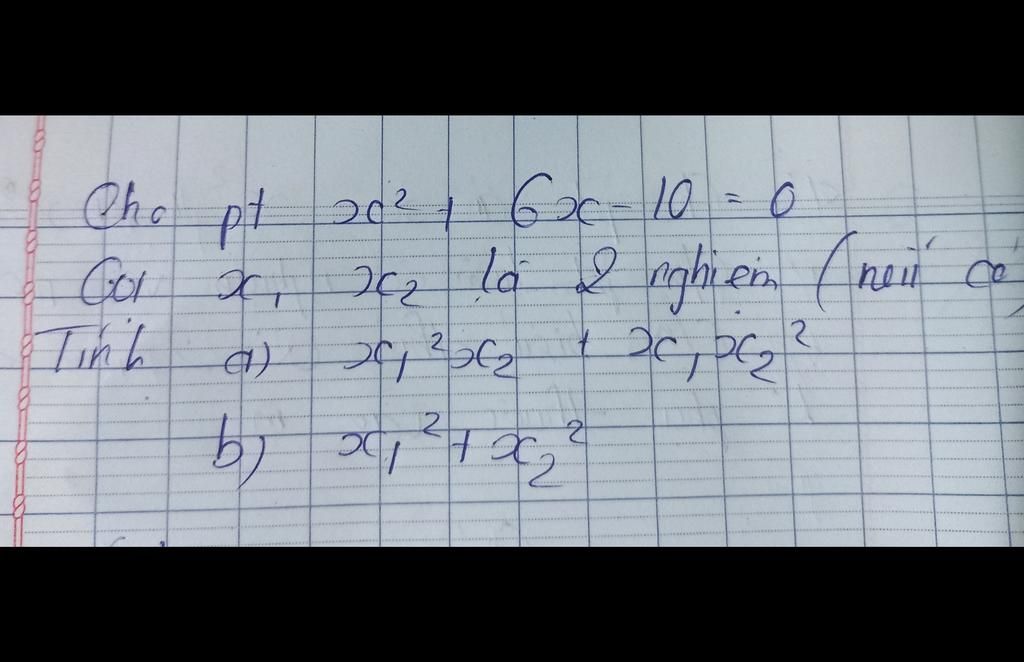 Cho pt x² + 6x - 10 = 0
Gọi x₁ x₂ là 2 nghiệm (nếu có)
Tính a) x₁²x₂ + x₁x₂²
b) x₁² + x₂²